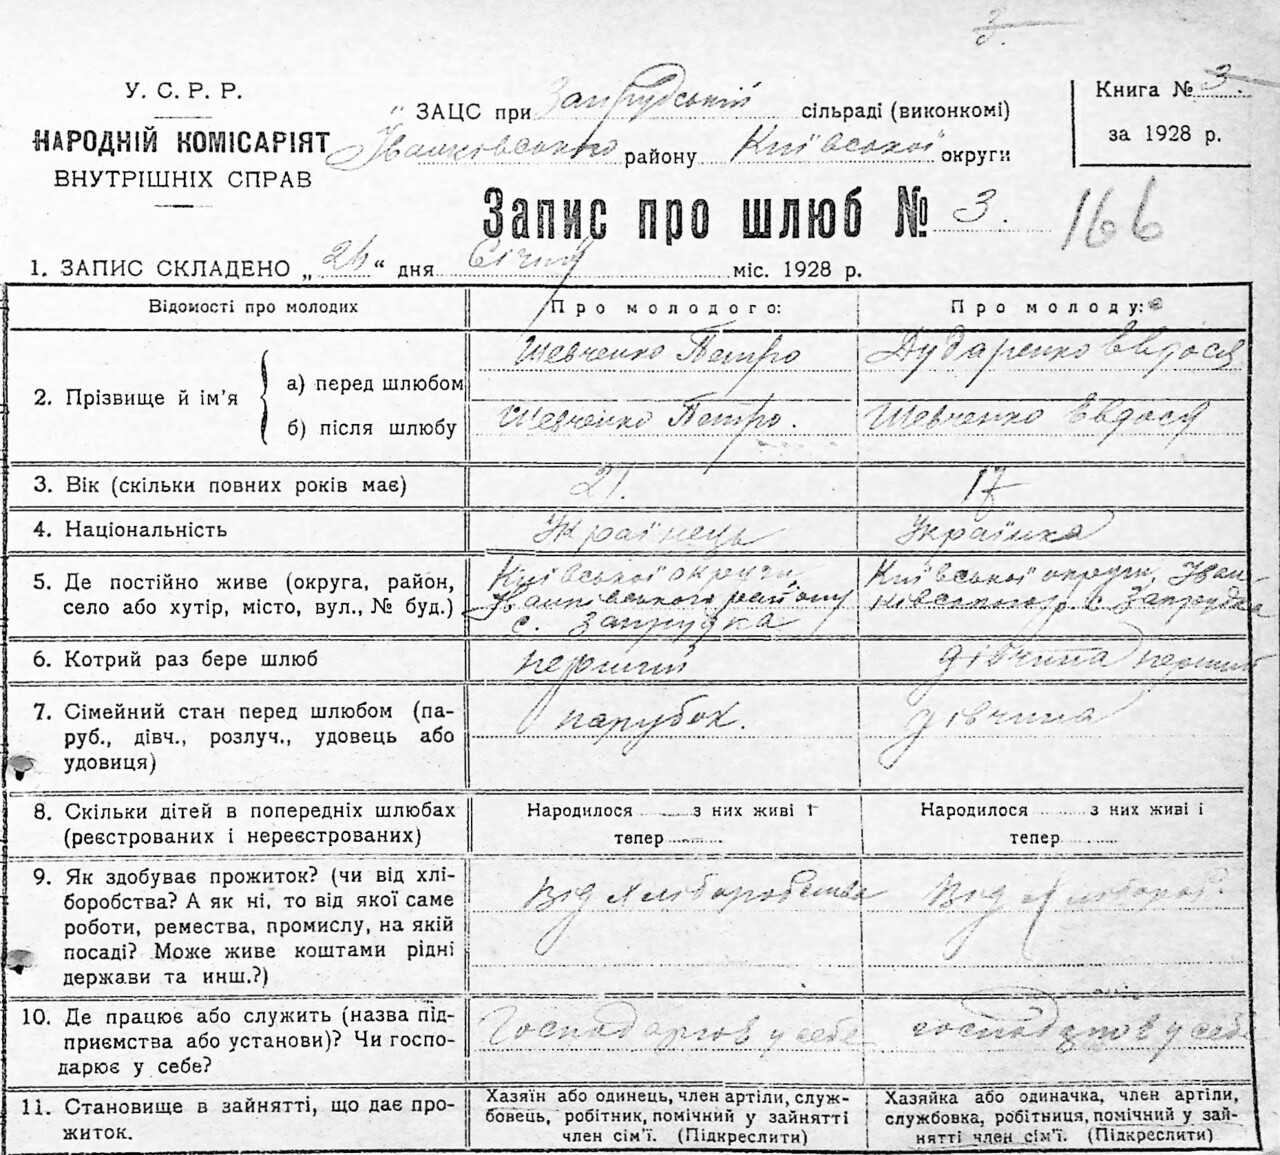 3.
У. С. Р. Р.
НАРОДНІЙ КОМІСАРІЯТ
ВНУТРІШНІХ СПРАВ
ЗАЦС при Запрудській сільраді (виконкомі)
Іванковського району Київської округи
Книга № 3.
за 1928 р.
Запис про шлюб № 3.
166
1. ЗАПИС СКЛАДЕНО „ “ дня Січня міс. 1928 р.
Відомості про молодих
Про молодого:
Про молоду:
2. Прізвище й ім’я
а) перед шлюбом
Шевченко Петро
Дударенко Євдося
б) після шлюбу
Шевченко Петро.
Шевченко Євдося
3. Вік (скільки повних років має)
21.
17
4. Національність
Українець
Українка
5. Де постійно живе (округа, район,
село або хутір, місто, вул., № буд.)
Київської округи
Іванківського району
с. Запрудка
Київської округи, Іван-
ківського р. с. Запрудка
6. Котрий раз бере шлюб
перший
дівчина перший
7. Сімейний стан перед шлюбом (па-
руб., дівч., розлуч., удовець або
удовиця)
парубок.
дівчина
8. Скільки дітей в попередніх шлюбах
(реєстрованих і нереєстрованих)
Народилося ........ з них живі і
тепер ........
Народилося ........ з них живі і
тепер ........
9. Як здобуває прожиток? (чи від хлі-
боробства? А як ні, то від якої саме
роботи, ремества, промислу, на якій
посаді? Може живе коштами рідні
держави та инш.?)
Від хліборобства
Від хлібороб.
10. Де працює або служить (назва під-
приємства або установи)? Чи госпо-
дарює у себе?
Господарюв у себе
господарюв у себе
11. Становище в зайнятті, що дає про-
житок.
Хазяїн або одинець, член артіли, служ-
бовець, робітник, помічний у зайнятті
член сім’ї. (Підкреслити)
Хазяйка або одиначка, член артіли,
службовка, робітниця, помічний у зай-
нятті член сім’ї. (Підкреслити)